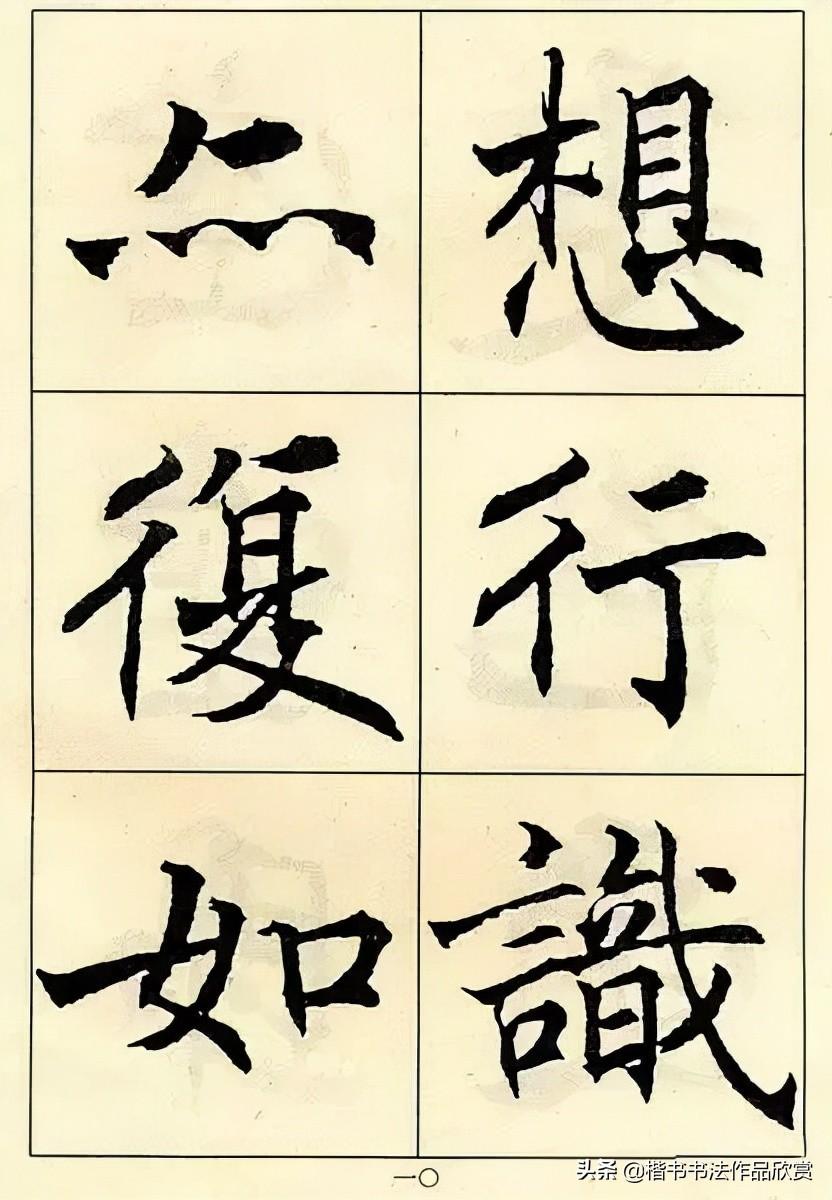 想行識
亦復如
一〇
头条 @楷书书法作品欣赏